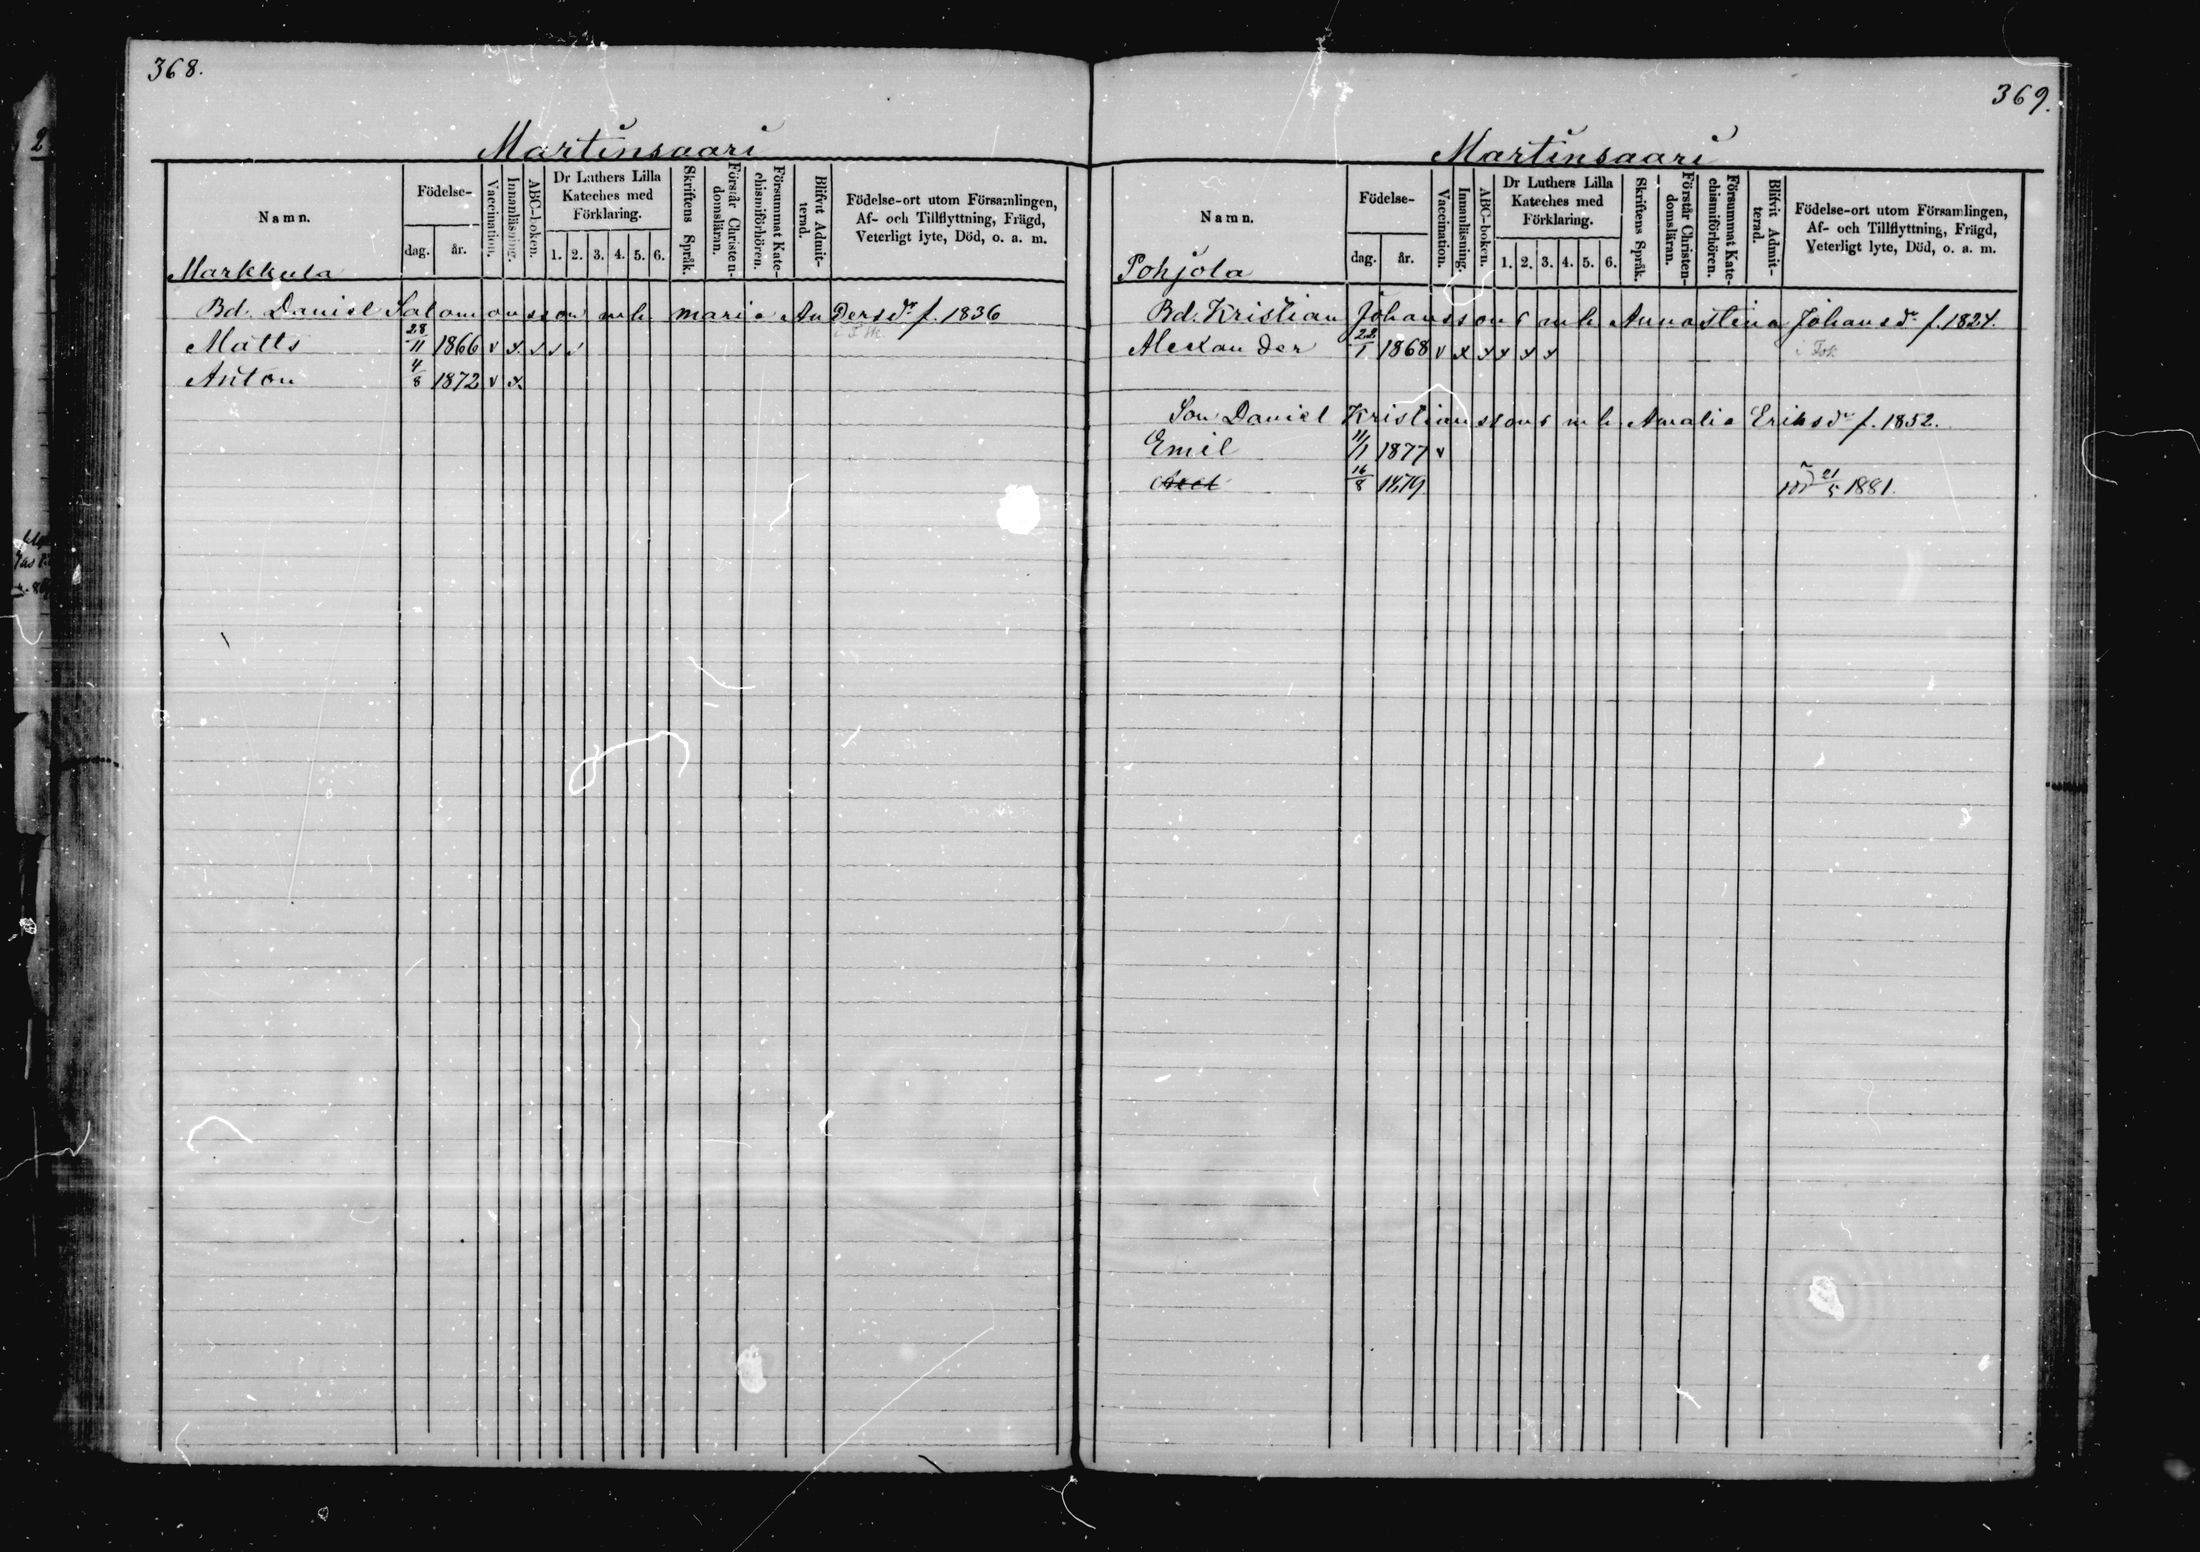 368.
Martinsaari
Namn.
Födelse-
dag.
år.
Vaccination.
Innanläsning.
ABC-boken.
Dr Luthers Lilla
Kateches med
Förklaring.
1. 2. 3. 4. 5. 6.
Skriftens Språk.
Förstår Christen-
domsläran.
Försummat Kate-
chismiförhören.
Blifvit Admit-
terad.
Födelse-ort utom Församlingen,
Af- och Tillflyttning, Frägd,
Veterligt lyte, Död, o. a. m.
Markkula
Bd. Daniel Salomonsson m h Maria Andersdr f. 1836
Matts 28/11 1866 v x
Anton 4/8 1872 v x
369.
Martinsaari
Namn.
Födelse-
dag.
år.
Vaccination.
Innanläsning.
ABC-boken.
Dr Luthers Lilla
Kateches med
Förklaring.
1. 2. 3. 4. 5. 6.
Skriftens Språk.
Förstår Christen-
domsläran.
Försummat Kate-
chismiförhören.
Blifvit Admit-
terad.
Födelse-ort utom Församlingen,
Af- och Tillflyttning, Frägd,
Veterligt lyte, Död, o. a. m.
Pohjola
Bd. Kristian Johanssons m h Annastina Johansdr f. 1824.
Alexander 22/1 1868 v x x x x x
Son Daniel Kristianssons m h Amalia Eriksdr f. 1852.
Emil 11/1 1877 v
Axel 16/8 1879 21/5 1881.